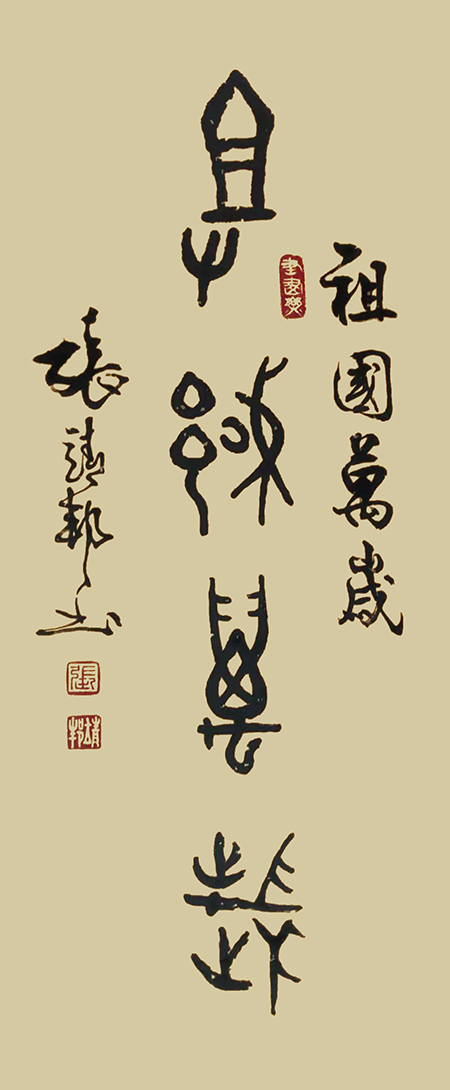 祖國萬歲
祖國萬歲
張靖邦书
張
靖邦